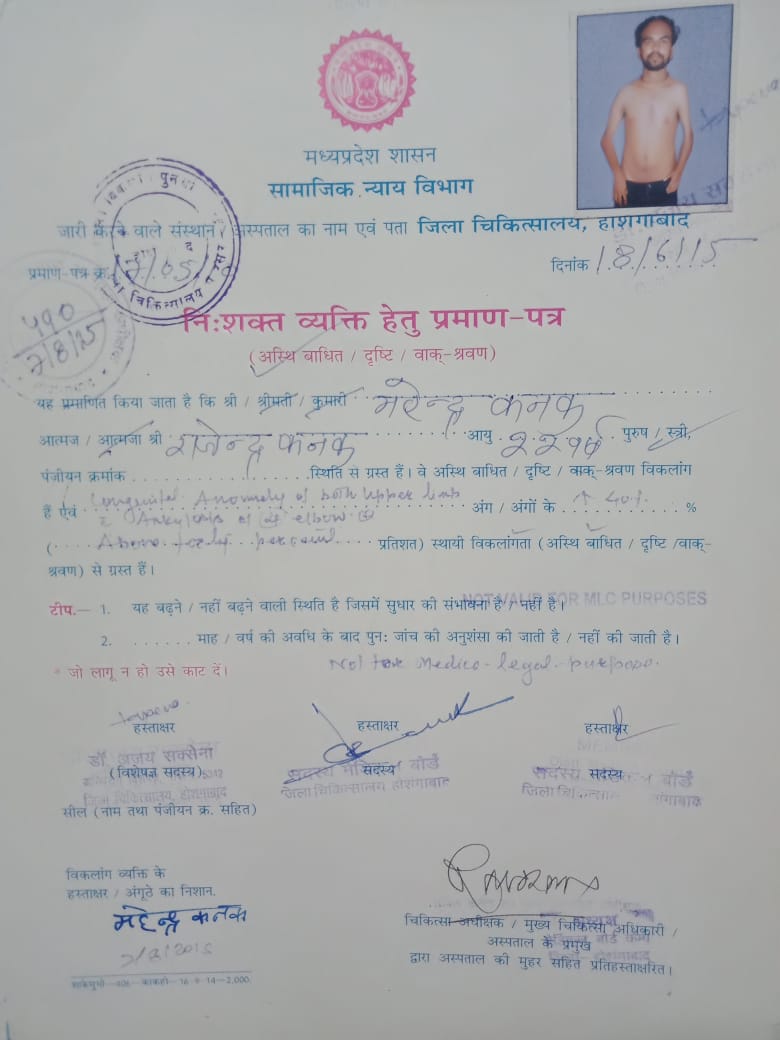 मध्यप्रदेश शासन
सामाजिक न्याय विभाग
जारी करने वाले संस्थान / अस्पताल का नाम एवं पता जिला चिकित्सालय, होशंगाबाद
प्रमाण-पत्र क्र.
दिनांक 18/6/15
490
7/8/15
निःशक्त व्यक्ति हेतु प्रमाण-पत्र
(अस्थि बाधित / दृष्टि / वाक्-श्रवण)
यह प्रमाणित किया जाता है कि श्री / श्रीमती / कुमारी कनक
आत्मज / आत्मजा श्री राजेन्द्र कनक आयु 22 वर्ष पुरुष / स्त्री,
पंजीयन क्रमांक स्थिति से ग्रस्त हैं। वे अस्थि बाधित / दृष्टि / वाक्-श्रवण विकलांग
हैं एवं Congenital Anomaly of both Upper limb अंग / अंगों के 40% %
Ankylosis of elbow
( प्रतिशत) स्थायी विकलांगता (अस्थि बाधित / दृष्टि / वाक्-
श्रवण) से ग्रस्त हैं।
टीप.— 1. यह बढ़ने / नहीं बढ़ने वाली स्थिति है जिसमें सुधार की संभावना है / नहीं है।
NOT VALID FOR MLC PURPOSES
2. ...... माह / वर्ष की अवधि के बाद पुन: जांच की अनुशंसा की जाती है / नहीं की जाती है।
* जो लागू न हो उसे काट दें।
Not for Medico-legal purpose.
हस्ताक्षर हस्ताक्षर हस्ताक्षर
डॉ. अजय सक्सेना
(विशेषज्ञ सदस्य) सदस्य सदस्य
सदस्य मेडिकल बोर्ड
जिला चिकित्सालय होशंगाबाद
जिला चिकित्सालय, होशंगाबाद
सील (नाम तथा पंजीयन क्र. सहित)
विकलांग व्यक्ति के
हस्ताक्षर / अंगूठे का निशान.
महेन्द्र कनक
चिकित्सा अधीक्षक / मुख्य चिकित्सा अधिकारी /
अस्पताल के प्रमुख
द्वारा अस्पताल की मुहर सहित प्रतिहस्ताक्षरित।